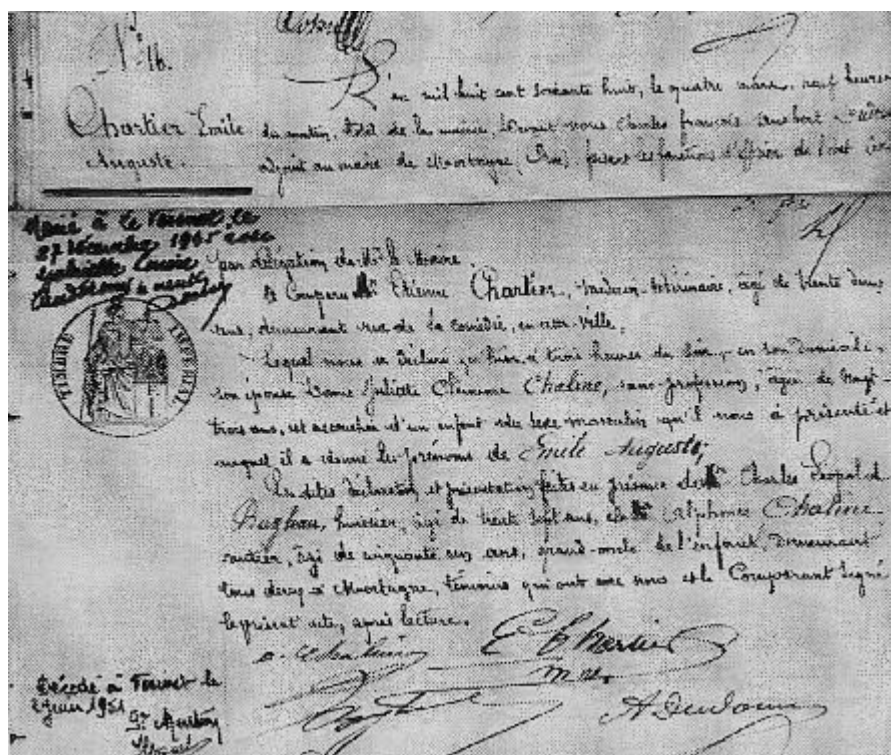 N° 16.
Chartier Emile
Auguste.
L'an mil huit cent soixante huit, le quatre mars, neuf heures
du matin, hôtel de la mairie, devant nous Charles François
adjoint au maire de Mortagne, (Orne) faisant les fonctions d'officier de l'état
Marié à le Vésinet, le
27 décembre 1945 avec
Gabrielle
TIMBRE IMPERIAL
par délégation de Mr le Maire.
A Comparu Mr Etienne Chartier, médecin-vétérinaire, âgé de trente deux
ans, demeurant rue de la comédie, en cette ville,
Lequel nous a déclaré qu'hier, à trois heures du soir, en son domicile,
son épouse Dame Juliette Clémence Chaline, sans profession, âgée de vingt
trois ans, est accouchée d'un enfant du sexe masculin qu'il nous a présenté et
auquel il a donné les prénoms de Emile Auguste,
Les dites déclaration et présentation faites en présence de Mr Charles Léopold
huissier, âgé de trente sept ans, et de Mr Alphonse Chaline
rentier, âgé de cinquante six ans, grand-oncle de l'enfant, demeurant
tous deux à Mortagne, témoins qui ont avec nous et le Comparant signé
le présent acte, après lecture.
E. Chartier
m.v.
Décédé à Vésinet le
2 juin 1951